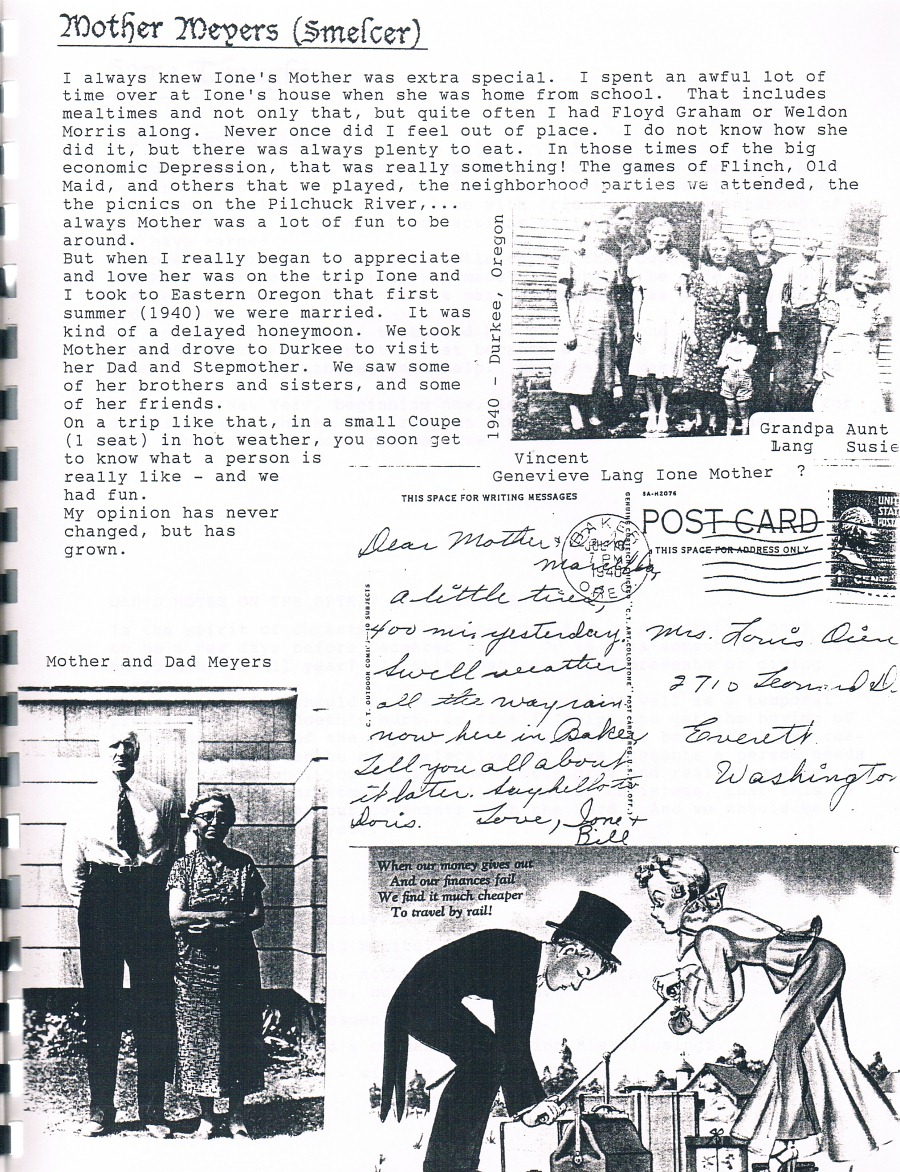 Mother Meyers (Smelcer)
I always knew Ione's Mother was extra special. I spent an awful lot of
time over at Ione's house when she was home from school. That includes
mealtimes and not only that, but quite often I had Floyd Graham or Weldon
Morris along. Never once did I feel out of place. I do not know how she
did it, but there was always plenty to eat. In those times of the big
economic Depression, that was really something! The games of Flinch, Old
Maid, and others that we played, the neighborhood parties we attended, the
the picnics on the Pilchuck River,...
always Mother was a lot of fun to be
around.
But when I really began to appreciate
and love her was on the trip Ione and
I took to Eastern Oregon that first
summer (1940) we were married. It was
kind of a delayed honeymoon. We took
Mother and drove to Durkee to visit
her Dad and Stepmother. We saw some
of her brothers and sisters, and some
of her friends.
On a trip like that, in a small Coupe
(1 seat) in hot weather, you soon get
to know what a person is
really like - and we
had fun.
My opinion has never
changed, but has
grown.
1940 - Durkee, Oregon
Grandpa Aunt
Lang Susie
Vincent
Genevieve Lang Ione Mother ?
THIS SPACE FOR WRITING MESSAGES
5A-H2076
POST CARD
THIS SPACE FOR ADDRESS ONLY
BAKER
PM
1940
OREG
UNIT
STAT
POST
Dear Mother &
A little tired,
400 mi. yesterday.
Swell weather
all the way, rain
now here in Baker
Tell you all about
it later. Say hello to
Doris. Love, Ione &
Bill
Mrs. Louis Oien
2710 Leonard D
Everett
Washington
Mother and Dad Meyers
When our money gives out
And our finances fail
We find it much cheaper
To travel by rail!